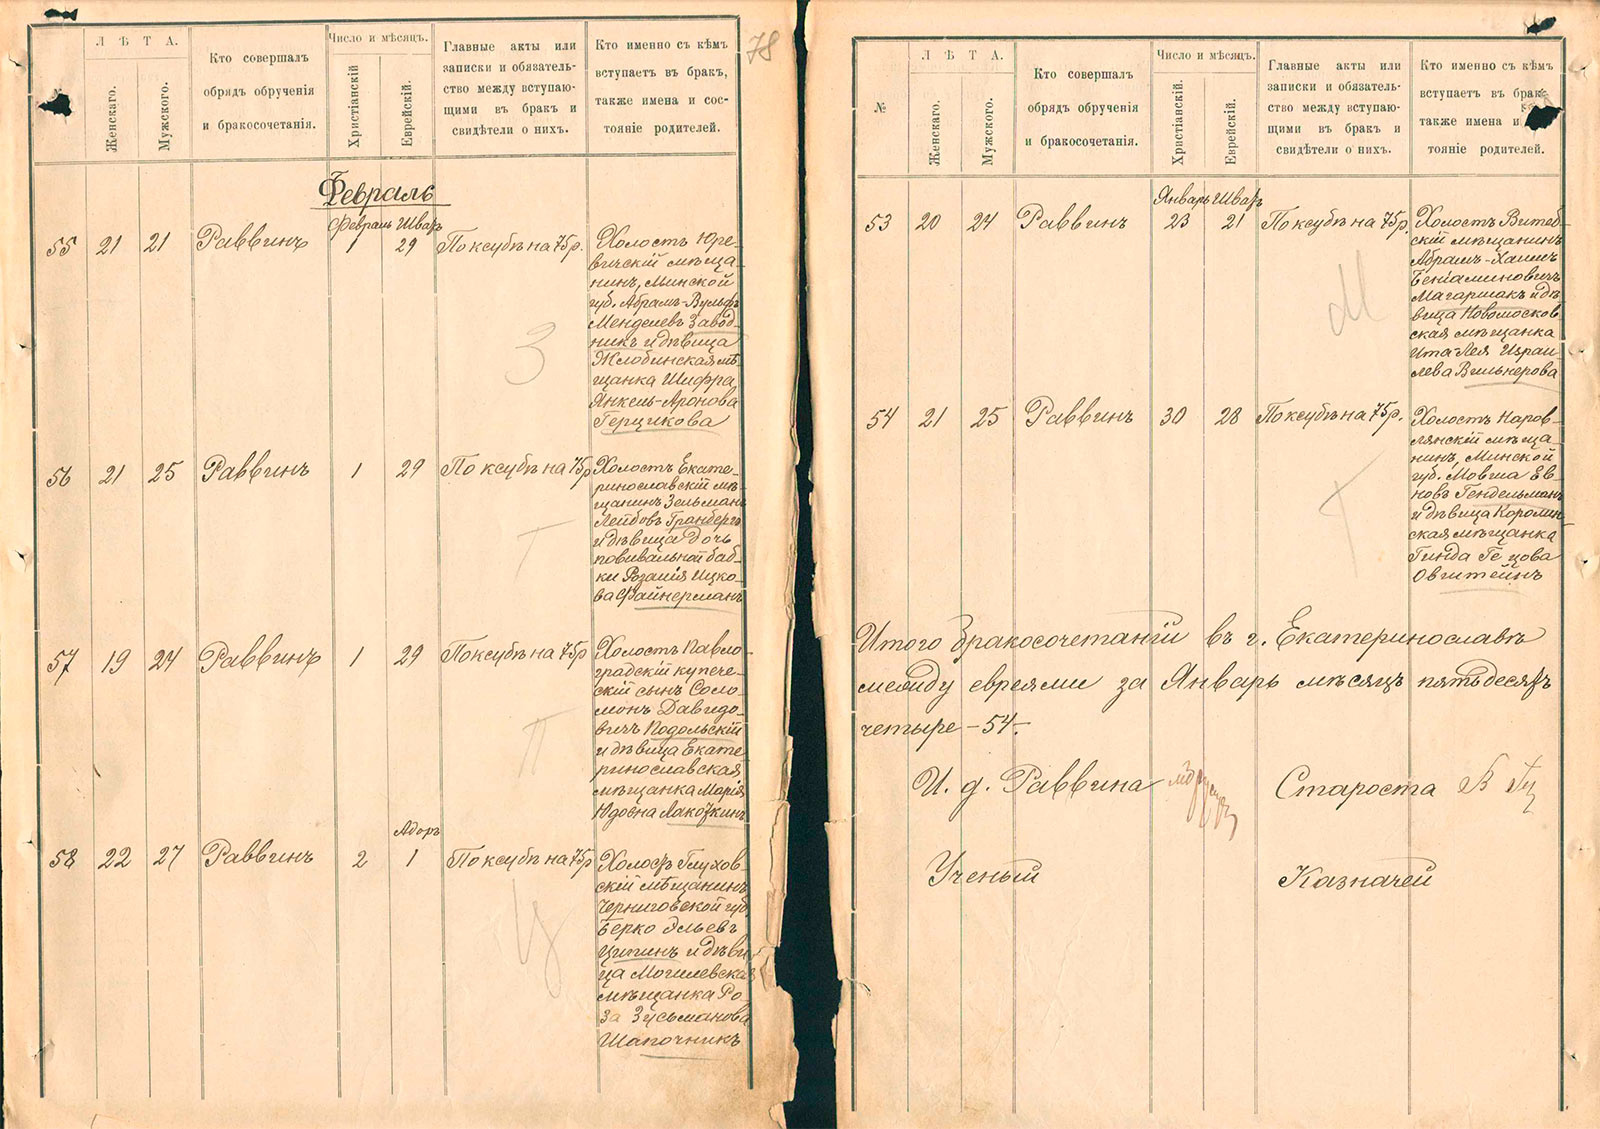 78
Л Ѣ Т А.
Женскаго.
Мужского.
Кто совершалъ
обрядъ обрученія
и бракосочетанія.
Число и мѣсяцъ.
Христіанскій
Еврейскій.
Главные акты или
записки и обязатель-
ство между вступаю-
щими въ бракъ и
свидѣтели о нихъ.
Кто именно съ кѣмъ
вступаетъ въ бракъ,
также имена и сос-
тояніе родителей.
Февраль
Февраль Шватъ
55 21 21 Раввинъ 1 29 По ксубѣ на 75 р.
Холостъ Юре-
вичскій мѣща-
нинъ, Минской
губ. Абрамъ-Вульфъ
Менделевъ Завод-
никъ и дѣвица
Жлобинская мѣ-
щанка Шифра
Янкель-Аронова
Герщикова
З
56 21 25 Раввинъ 1 29 По ксубѣ на 75р
Холостъ Екате-
ринославскій мѣ-
щанинъ Зельманъ
Лейбовъ Гранбергъ
и дѣвица дочь
повивальной баб-
ки Розалія Ицко-
ва Файнерманъ
Г
57 19 24 Раввинъ 1 29 По ксубѣ на 75р
Холостъ Павло-
градскій купече-
скій сынъ Соло-
монъ Давидо-
вичъ Подольскій
и дѣвица Екате
ринославская
мѣщанка Марія
Юдовна Лакозкинъ
П
Адоръ
58 22 27 Раввинъ 2 1 По ксубѣ на 75р
Холостъ Глухов-
скій мѣщанинъ
Черниговской губ.
Берко Эльевъ
Ципинъ и дѣви
ца Могилевская
мѣщанка Ро-
за Зусьманова
Шапочникъ
Ц
№
Л Ѣ Т А.
Женскаго.
Мужского.
Кто совершалъ
обрядъ обрученія
и бракосочетанія.
Число и мѣсяцъ.
Христіанскій.
Еврейскій.
Главные акты или
записки и обязатель-
ство между вступаю-
щими въ бракъ и
свидѣтели о нихъ.
Кто именно съ кѣмъ
вступаетъ въ бракъ
также имена и
тояніе родителей.
Январь Шватъ
53 20 24 Раввинъ 23 21 По ксубѣ на 75р.
Холостъ Витеб-
скій мѣщанинъ
Абрамъ-Хаимъ
Беніаминовичъ
Магаршакъ и дѣ
вица Новомосков
ская мѣщанка
Ита Лея Израи
лева Вильнерова
М
54 21 25 Раввинъ 30 28 По ксубѣ на 75р.
Холостъ Наров-
лянскій мѣща-
нинъ, Минской
губ. Мовша Ев-
новъ Гендельманъ
и дѣвица Королин-
ская мѣщанка
Гинда Гецова
Овштейнъ
Г
Итого бракосочетаній въ г. Екатеринославѣ
между евреями за Январь мѣсяцъ пятьдесятъ
четыре - 54 -
И. д. Раввина Староста
Ученый Казначей